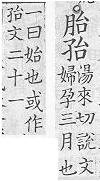 胎孡湯來切說文
婦孕三月也
一曰始也或作
孡文二十